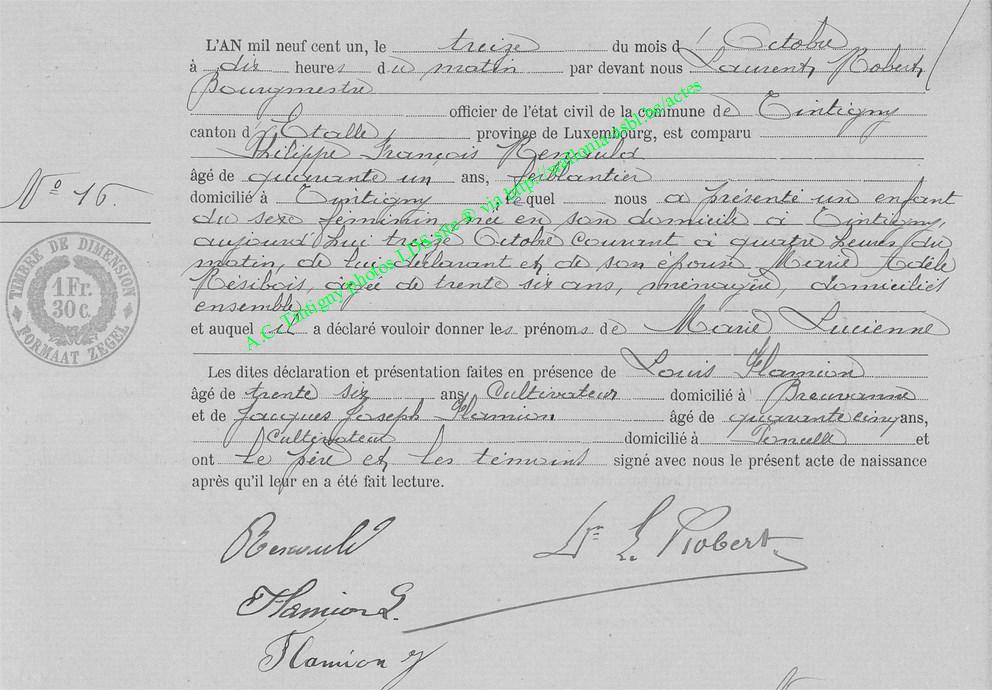 L'AN mil neuf cent un, le treize du mois d'Octobre
à dix heures du matin par devant nous Laurent Robert,
Bourgmestre
officier de l'état civil de la commune de Tintigny
canton d'Etalle province de Luxembourg, est comparu
Philippe François Renauld
âgé de quarante un ans, ferblantier
domicilié à Tintigny, lequel nous a présenté un enfant
du sexe féminin, née en son domicile à Tintigny,
aujourd'hui treize Octobre courant à quatre heures du
matin, de lui déclarant et de son épouse Marie Adèle
Résibois, agée de trente six ans, ménagère, domiciliés
ensemble
et auquel il a déclaré vouloir donner les prénoms de Marie Lucienne
Les dites déclaration et présentation faites en présence de Louis Flamion
âgé de trente six ans Cultivateur domicilié à Breuvanne
et de Jacques Joseph Flamion âgé de quarante cinq ans,
Cultivateur domicilié à et
ont le père et les témoins signé avec nous le présent acte de naissance
après qu'il leur en a été fait lecture.
N° 16.
TIMBRE DE DIMENSION
1 Fr.
30 c.
FORMAAT ZEGEL
A.C. Tintigny photos LDS site © via http://wallonia-asbl.be/actes
Renauld
L. Robert
Flamion L.
Flamion J